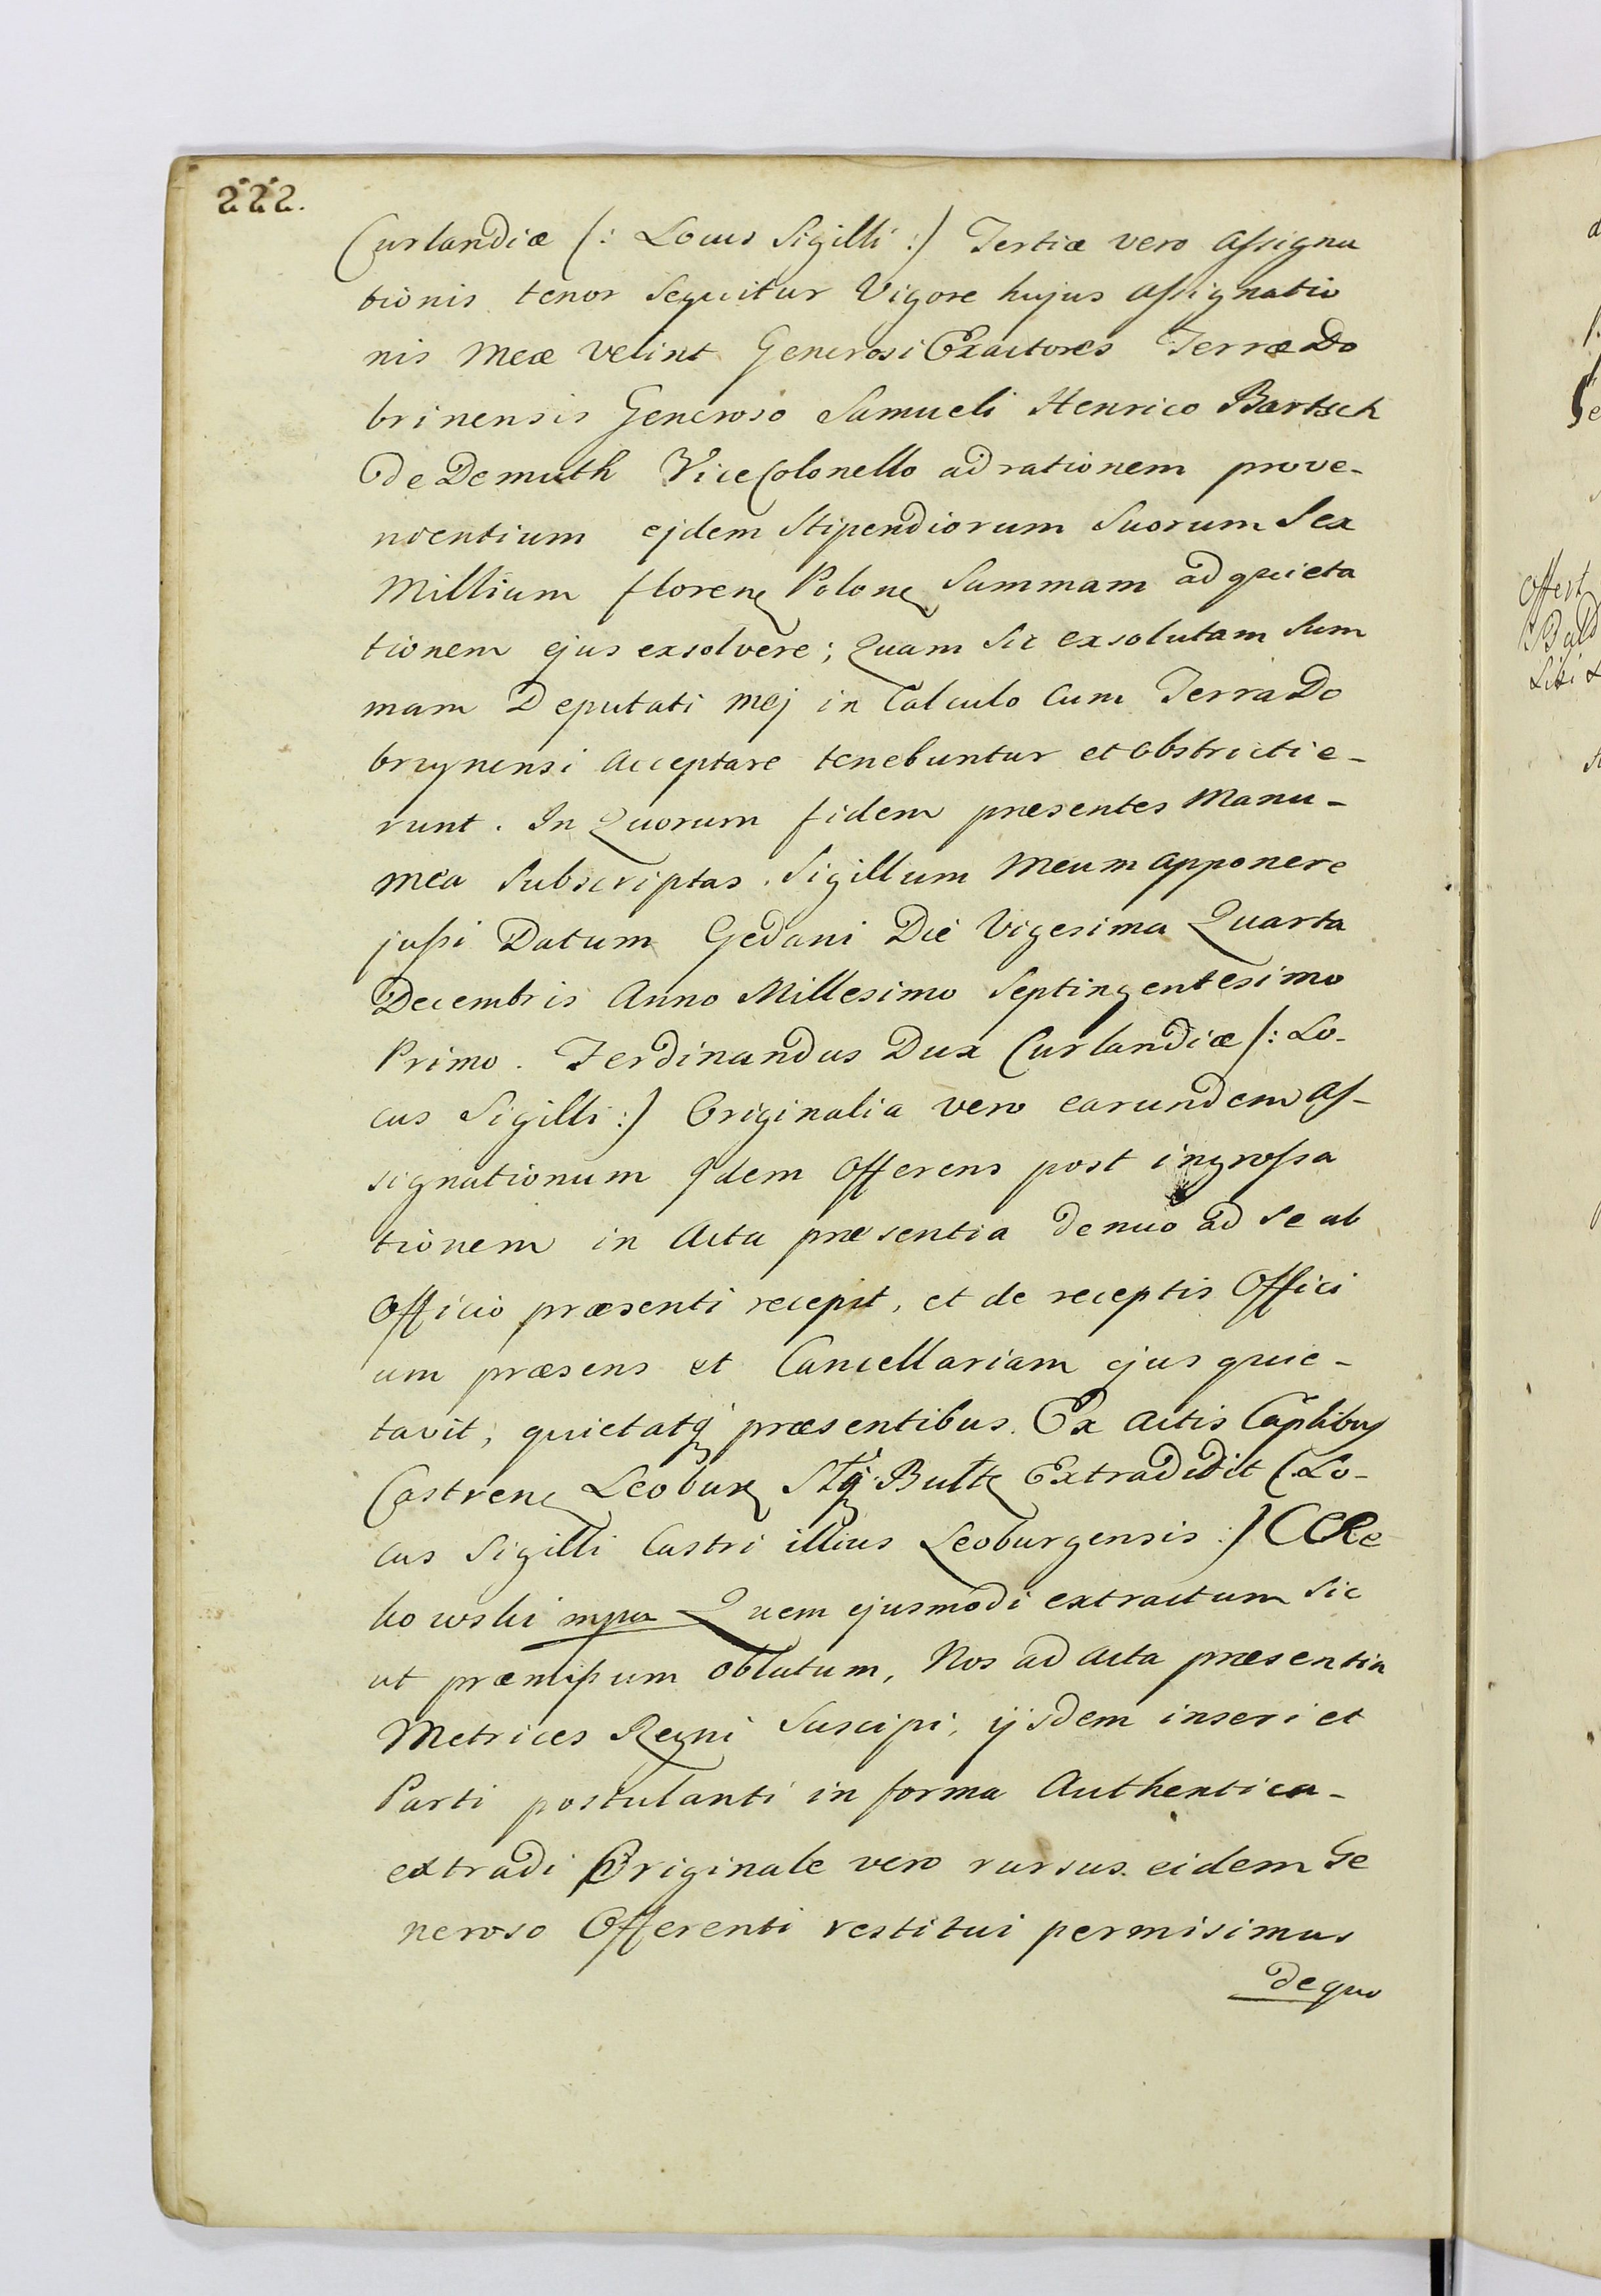 222.
Curlandiæ (: Locus Sigilli :) Tertiæ vero Assigna
tionis tenor Sequitur Vigore hujus Assignatio
nis Meæ Velint Generosi Exactores Terræ Do
brinensis Generoso Samueli Henrico Bartsch
de Demuth ViceColonello ad rationem prove-
nientium ejdem Stipendiorum Suorum Sex
Millium floren Polon Summam ad quieta
tionem ejus exsolvere; Quam Sic exsolutam Sum
mam Deputati Mej in Calculo Cum Terra Do
brzynensi Acceptare tenebuntur et obstricti e-
runt. In Quorum fidem præsentes Manu-
Mea Subscriptas. Sigillum Meum apponere
jussi Datum Gedani Die Vigesima Quarta
Decembris Anno Millesimo Septingentesimo
Primo. Ferdinandus Dux Curlandiæ (: Lo-
cus Sigilli :) Originalia vero earundem As-
signationum Idem Offerens post ingrossa
tionem in Acta præsentia denuo ad Se ab
Officio præsenti recepit, et de receptis Offici
um præsens et Cancellariam ejus quie-
tavit, quietatq præsentibus. Ex Actis Caplibus
Castren Leobur Extradidit (Lo-
cus Sigilli Castri illius Leoburgensis :)
kowski mpra Quem ejusmodi extractum Sic
ut præmissum oblatum, Nos ad Acta præsentia
Metrices Regni Suscipi, ijsdem inseri et
Parti postulanti in forma Authentica-
extradi Originale vero rursus eidem Ge
neroso Offerenti restitui permisimus
de quo
Offert